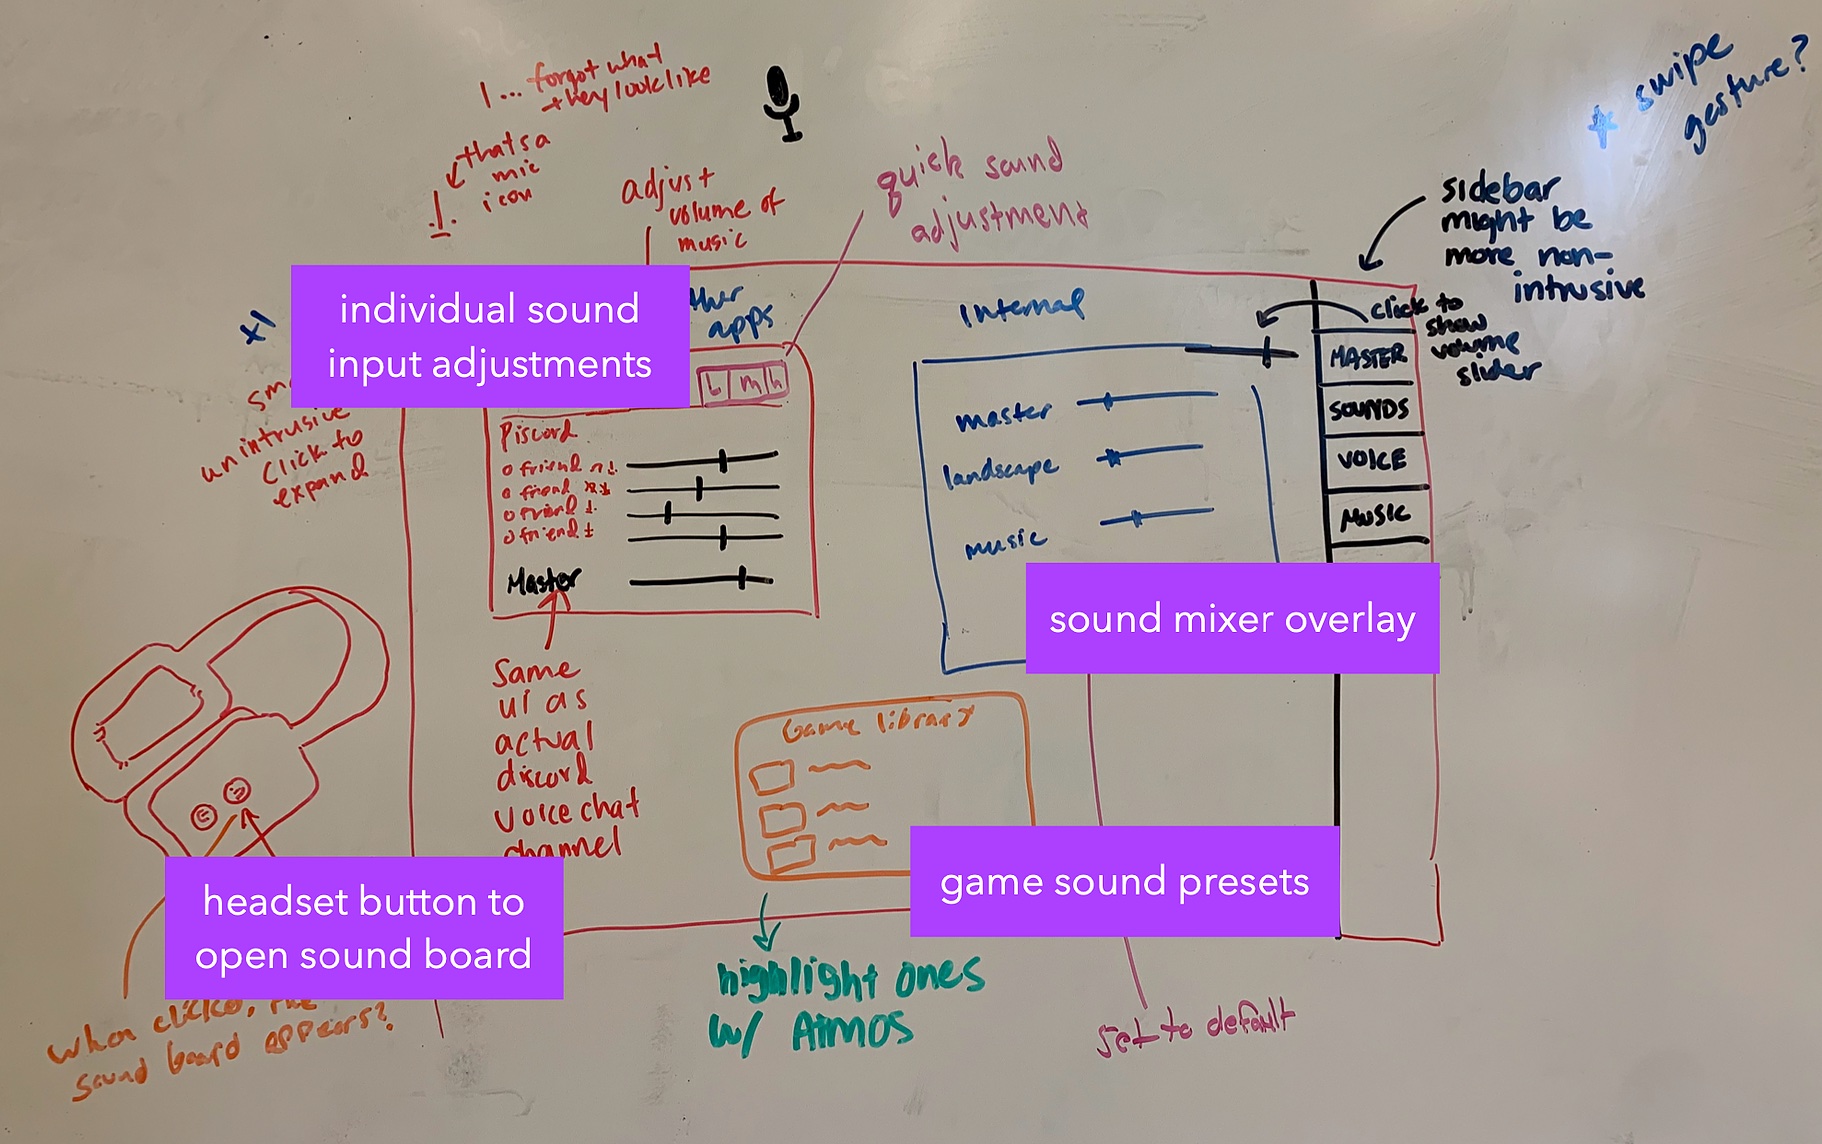 I... forgot what
they look like
thats a
mic
icon
adjust
volume of
music
quick sound
adjustment
swipe
gesture?
sidebar
might be
more non-
intrusive
individual sound
input adjustments
+1
unintrusive
click to
expand
apps
L m h
Discord
friend
friend
friend
friend
Master
Same
UI as
actual
discord
voice chat
channel
Internal
master
landscape
music
click to
show
volume
slider
MASTER
SOUNDS
VOICE
MUSIC
sound mixer overlay
Game library
game sound presets
headset button to
open sound board
when clicked, the
sound board appears?
highlight ones
w/ ATMOS
set to default